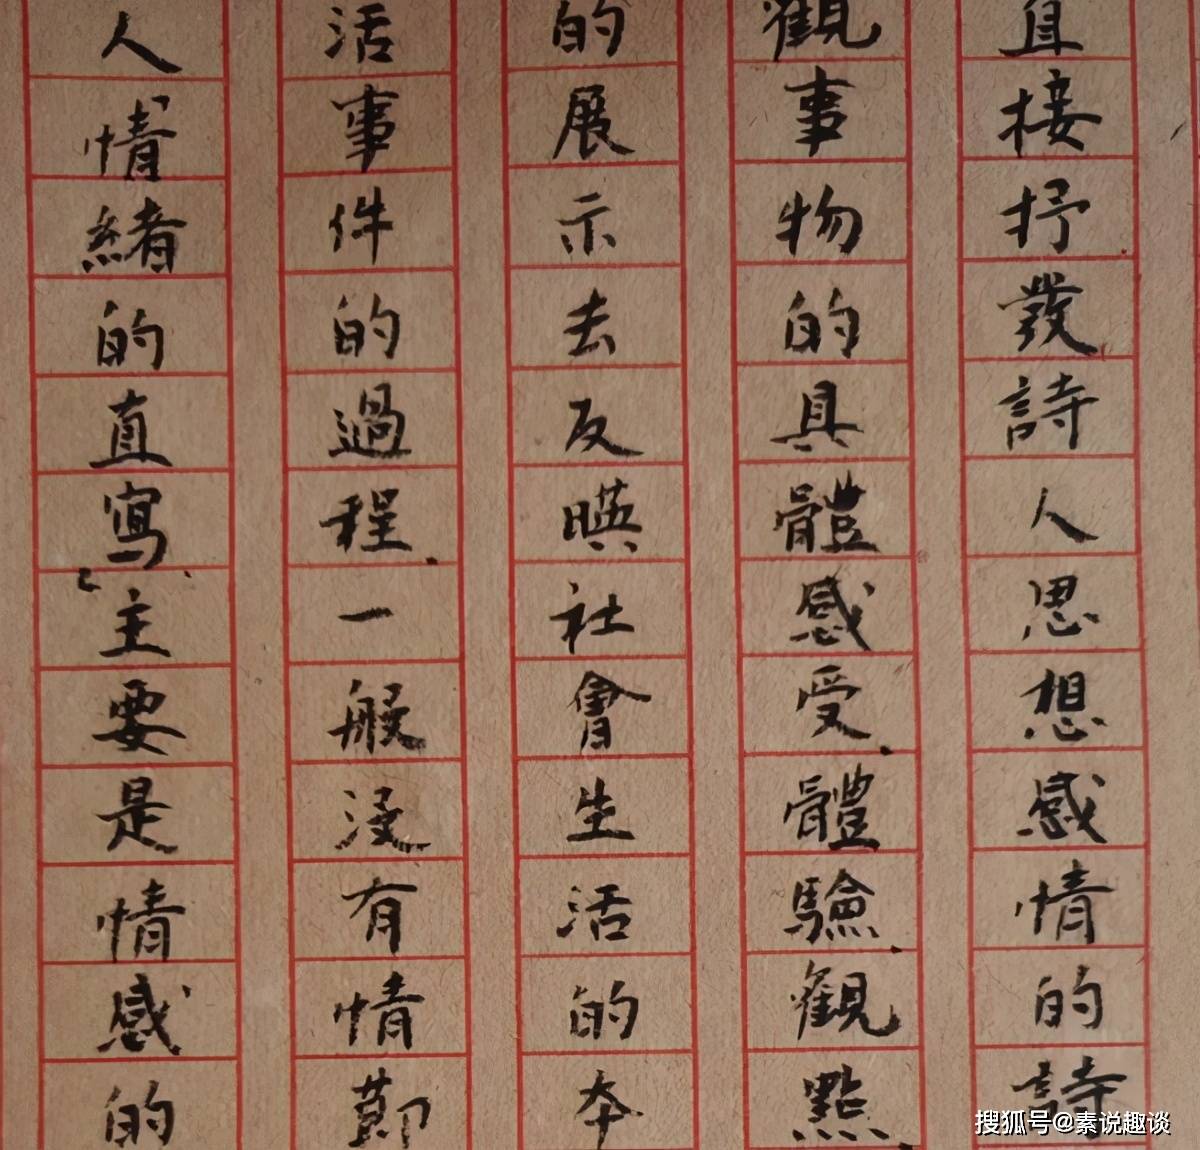 直接抒發詩人思想感情的詩
觀事物的具體感受.體驗.觀點.
的展示去反映社會生活的本
活事件的過程.一般沒有情節
人情緒的直寫.主要是情感的
搜狐号@素说趣谈